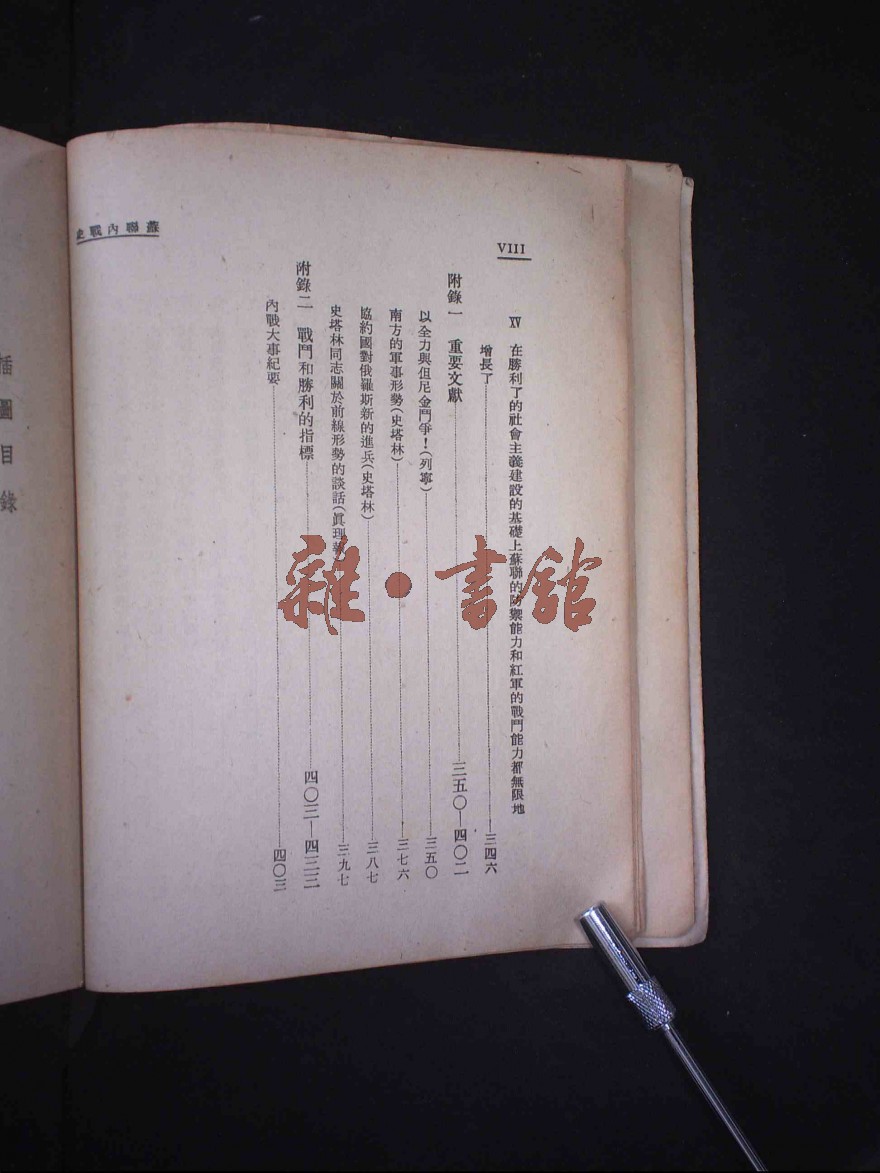 VIII
蘇聯內戰史
XV 在勝利了的社會主義建設的基礎上蘇聯的防禦能力和紅軍的戰鬥能力都無限地
增長了 三四六
附錄一 重要文獻 三五〇—四〇二
以全力與但尼金鬥爭!(列寧) 三五〇
南方的軍事形勢(史塔林) 三七六
協約國對俄羅斯新的進兵(史塔林) 三八七
史塔林同志關於前線形勢的談話(眞理報) 三九七
附錄二 戰鬥和勝利的指標 四〇三—四三三
內戰大事紀要 四〇三
插圖目錄
雜·書館